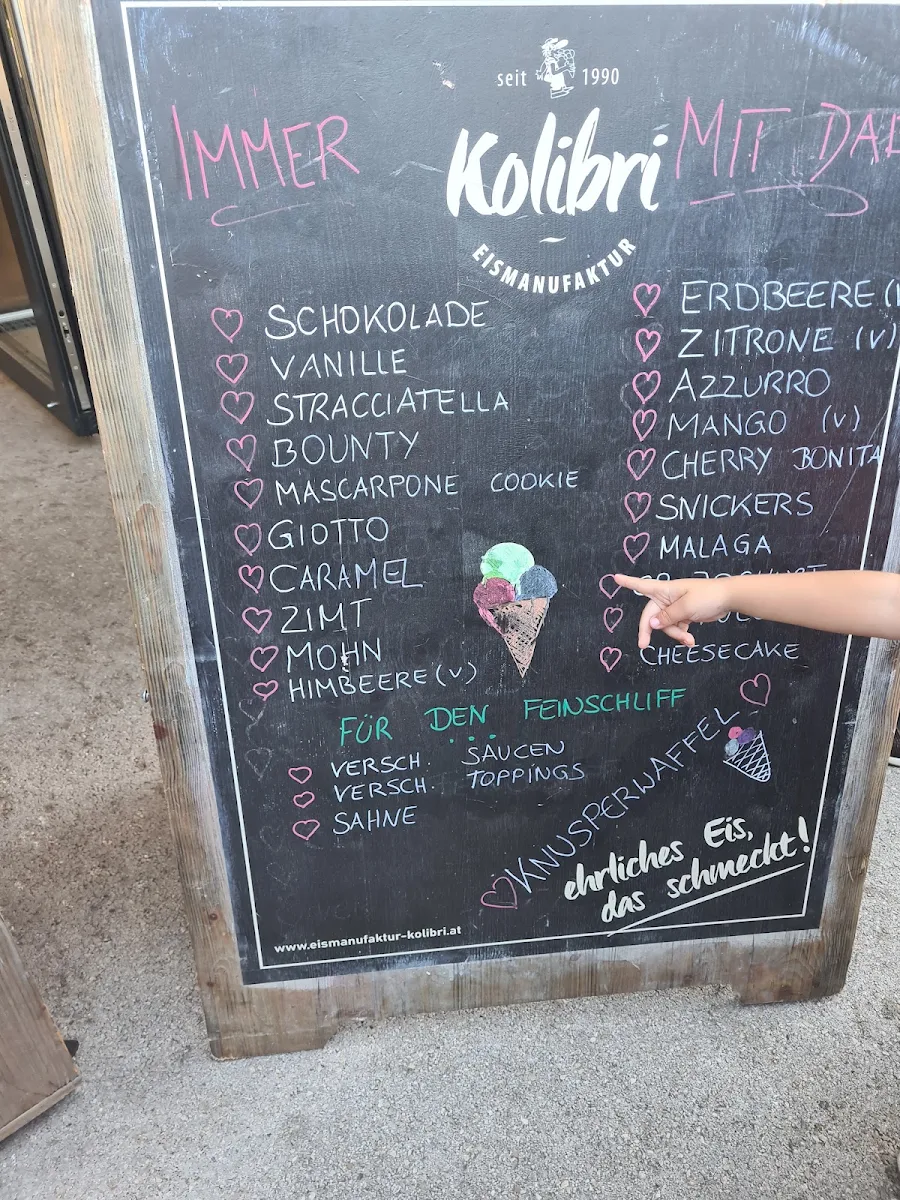 seit 1990
IMMER
Kolibri
MIT DAB
EISMANUFAKTUR
SCHOKOLADE
VANILLE
STRACCIATELLA
BOUNTY
MASCARPONE COOKIE
GIOTTO
CARAMEL
ZIMT
MOHN
HIMBEERE (V)
ERDBEERE (
ZITRONE (V)
AZZURRO
MANGO (V)
CHERRY BONITA
SNICKERS
MALAGA
CHEESECAKE
FÜR DEN FEINSCHLIFF
VERSCH. SAUCEN
VERSCH. TOPPINGS
SAHNE
KNUSPERWAFFEL
ehrliches Eis,
das schmeckt!
www.eismanufaktur-kolibri.at